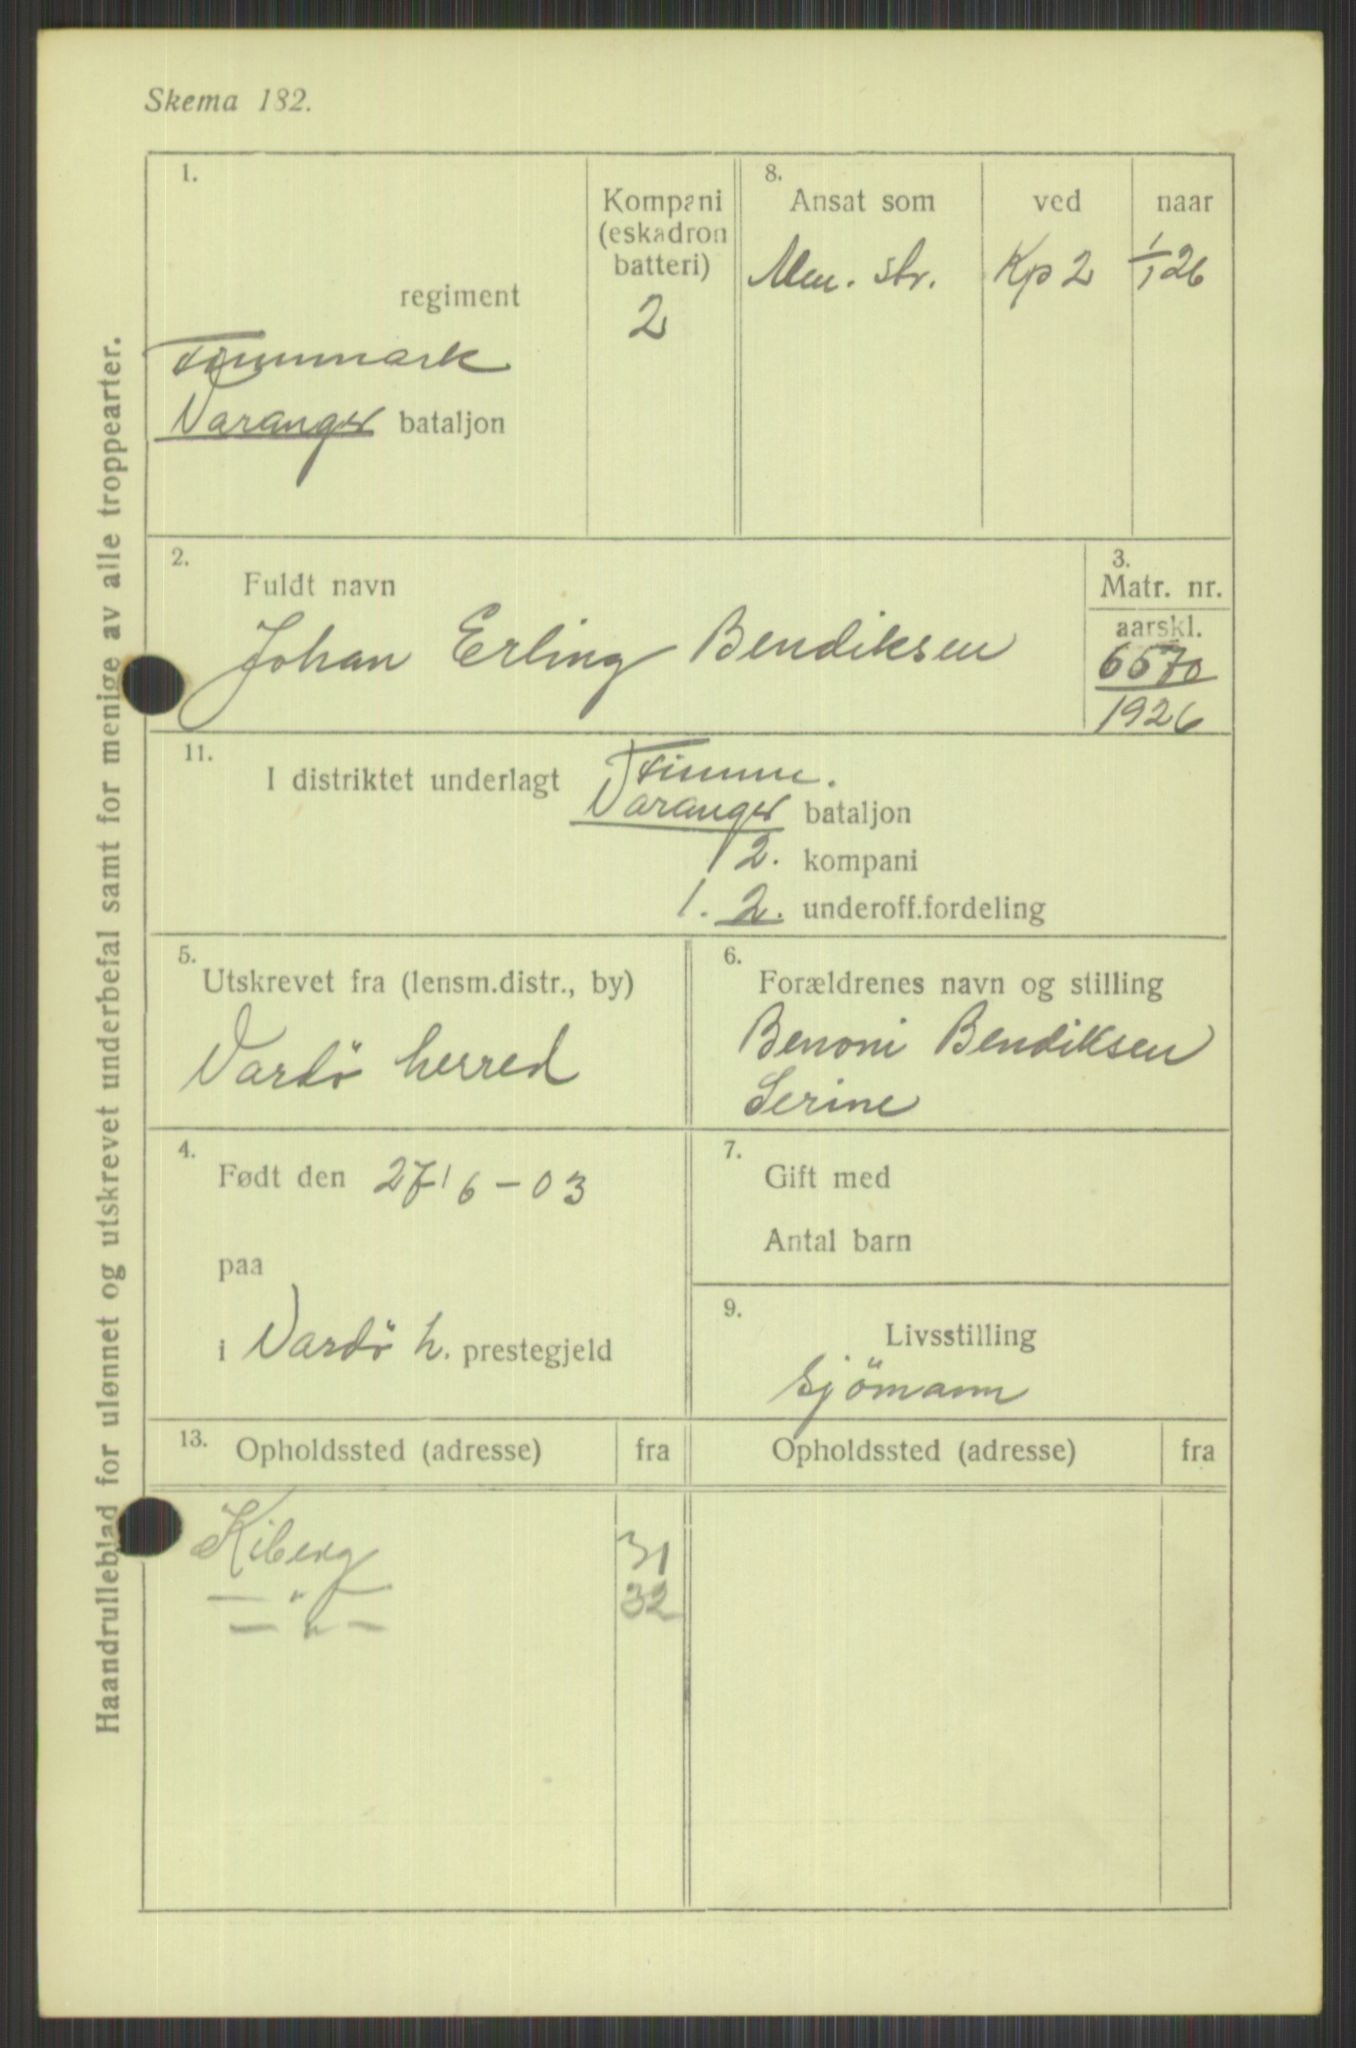 Skema 182.
Haandrulleblad for ulønnet og utskrevet underbefal samt for menige av alle troppearter.
1.
regiment
Finnmark
Varanger bataljon
Kompani
(eskadron
batteri)
2
8.
Ansat som
Men. str.
ved
Kp 2
naar
1/1 26
2.
Fuldt navn
Johan Erling Bendiksen
3.
Matr. nr.
aarskl.
1926
11.
I distriktet underlagt
Finnm.
Varanger bataljon
2. kompani
1. 2. underoff.fordeling
5.
Utskrevet fra (lensm.distr., by)
Vardö herred
6.
Forældrenes navn og stilling
Benoni Bendiksen
Serine
4.
Født den 27/6-03
paa
i Vardö h. prestegjeld
7.
Gift med
Antal barn
9.
Livsstilling
Sjömann
13.
Opholdssted (adresse) fra Opholdssted (adresse) fra
Kiberg 31
— " — 32
— " —